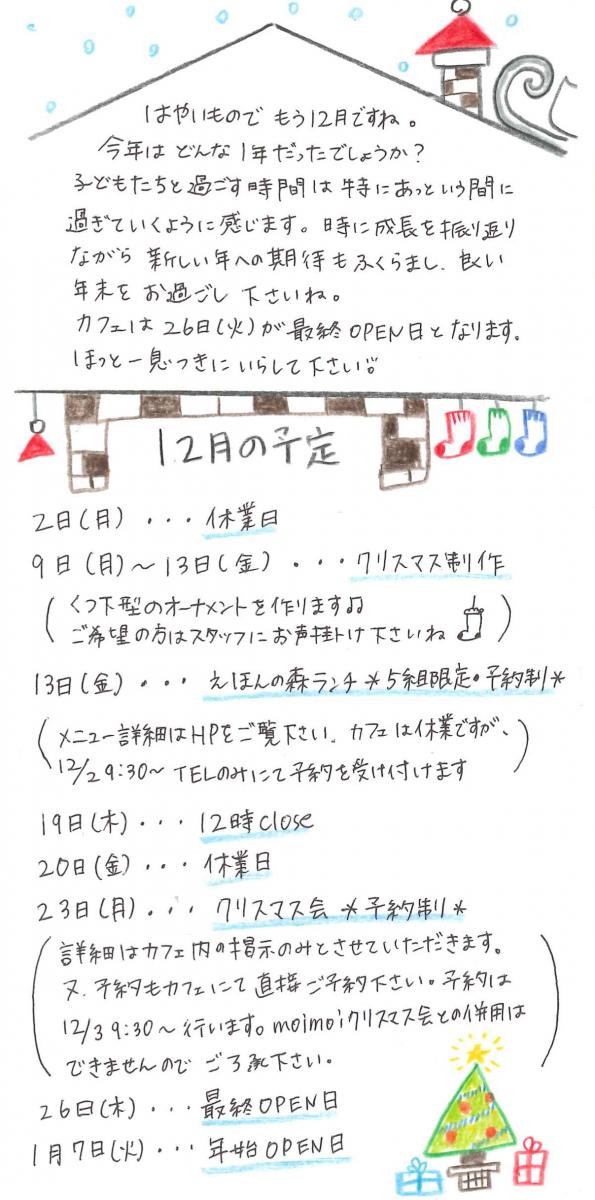 はやいもので もう12月ですね。
今年は どんな 1年だったでしょうか?
子どもたちと過ごす時間は 特にあっという間に
過ぎていくように感じます。時に成長を振り返り
ながら 新しい年への期待もふくらまし、良い
年末を お過ごし 下さいね。
カフェは 26日(火)が最終OPEN日となります。
ほっと一息つきにいらして下さい♡
12月の予定
2日(月)・・・休業日
9日(月)〜13日(金)・・・クリスマス制作
(くつ下型のオーナメントを作ります♫
ご希望の方はスタッフにお声掛け下さいね)
13日(金)・・・えほんの森ランチ*5組限定・予約制*
(メニュー詳細はHPをご覧下さい. カフェは休業ですが、
12/2 9:30〜 TELのみにて予約を受け付けます)
19日(木)・・・12時close
20日(金)・・・休業日
23日(月)・・・クリスマス会 *予約制*
(詳細はカフェ内の掲示のみとさせていただきます。
又、予約もカフェにて直接ご予約下さい。予約は
12/3 9:30〜行います。moimoiクリスマス会との併用は
できませんので ご了承下さい。)
26日(木)・・・最終OPEN日
1月7日(火)・・・年始OPEN日